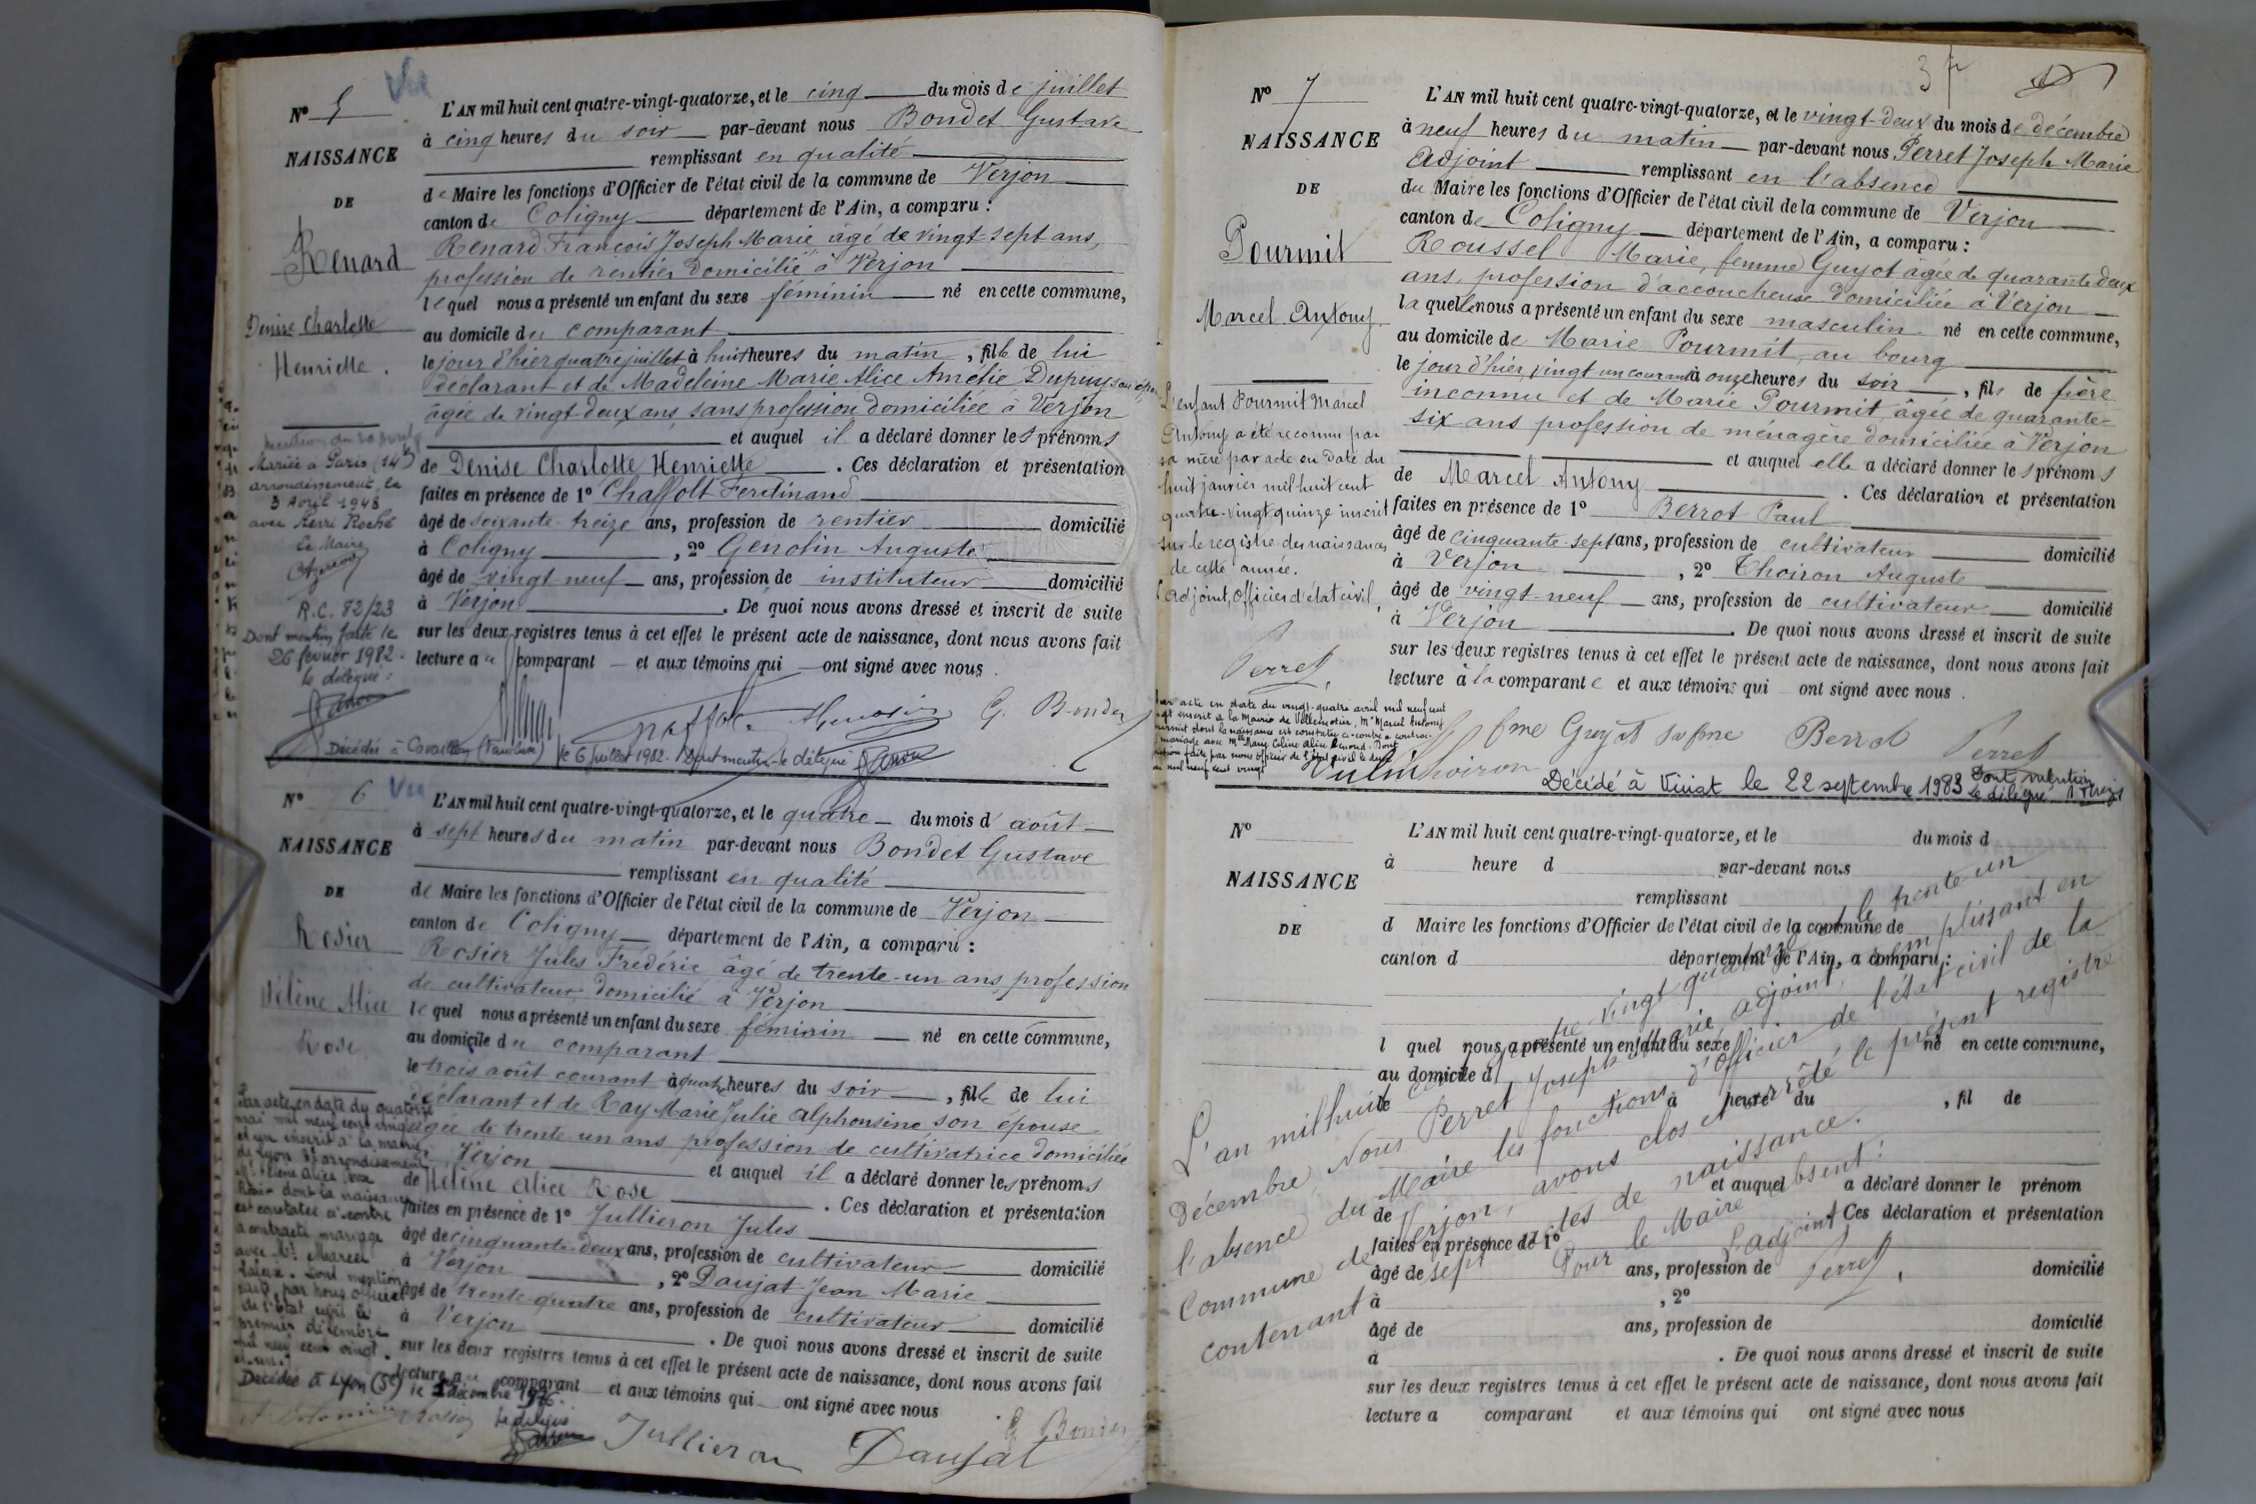 Nº 5
Vu
NAISSANCE
DE
Renard
Denise Charlotte
Henriette.
L'AN mil huit cent quatre-vingt-quatorze, et le cinq du mois de juillet
à cinq heures du soir par-devant nous Bondet Gustave
remplissant en qualité
de Maire les fonctions d'Officier de l'état civil de la commune de Verjon
canton de Coligny département de l'Ain, a comparu :
Renard François Joseph Marie âgé de vingt-sept ans,
profession de rentier domicilié à Verjon
lequel nous a présenté un enfant du sexe féminin né en cette commune,
au domicile du comparant
le jour d'hier quatre juillet à huit heures du matin, fille de lui
déclarant et de Madeleine Marie Alice Amélie Dupuy son
âgée de vingt-deux ans, sans profession domiciliée à Verjon
et auquel il a déclaré donner les prénoms
de Denise Charlotte Henriette. Ces déclaration et présentation
faites en présence de 1º Ferdinand
âgé de soixante-treize ans, profession de rentier domicilié
à Coligny, 2º Genolin Auguste
âgé de vingt neuf ans, profession de instituteur domicilié
à Verjon. De quoi nous avons dressé et inscrit de suite
sur les deux registres tenus à cet effet le présent acte de naissance, dont nous avons fait
lecture au comparant et aux témoins qui ont signé avec nous.
Mariée à Paris (14e)
arrondissement, le
3 Avril 1948
avec Henri Roché
Le Maire
R.C. 82/23
Dont mention faite le
26 février 1982.
le délégué :
G. Bondet
Décédée à Cavaillon (Vaucluse) le 6 juillet 1982. Dont mention le délégué
Nº 6
Vu
NAISSANCE
DE
Rosier
Hélène Alice
Rose
L'AN mil huit cent quatre-vingt-quatorze, et le quatre du mois d'août
à sept heures du matin par-devant nous Bondet Gustave
remplissant en qualité
de Maire les fonctions d'Officier de l'état civil de la commune de Verjon
canton de Coligny département de l'Ain, a comparu :
Rosier Jules Frédéric âgé de trente-un ans, profession
de cultivateur domicilié à Verjon
lequel nous a présenté un enfant du sexe féminin né en cette commune,
au domicile du comparant
le trois août courant à quatre heures du soir, fille de lui
déclarant et de Ray Marie Julie Alphonsine son épouse
âgée de trente un ans profession de cultivatrice domiciliée
Verjon et auquel il a déclaré donner les prénoms
de Hélène Alice Rose. Ces déclaration et présentation
faites en présence de 1º Jullieron Jules
âgé de cinquante-deux ans, profession de cultivateur domicilié
à Verjon, 2º Daujat Jean Marie
âgé de trente-quatre ans, profession de cultivateur domicilié
à Verjon. De quoi nous avons dressé et inscrit de suite
sur les deux registres tenus à cet effet le présent acte de naissance, dont nous avons fait
lecture au comparant et aux témoins qui ont signé avec nous.
Par acte en date du quatorze
mai mil neuf cent vingt
et un inscrit à la mairie
de Lyon arrondissement
Hélène Alice Rose
Rosier dont la naissance
est constatée ci-contre
a contracté mariage
avec Mr. Marcel
Dont mention
faite par nous officier
de l'état civil le
premier décembre
mil neuf cent vingt
et un.
Décédée à Lyon (5e) le décembre
le délégué
Jullieron Daujat
G. Bondet
37
Nº 7
NAISSANCE
DE
Pourmit
Marcel Antony
L'AN mil huit cent quatre-vingt-quatorze, et le vingt-deux du mois de décembre
à neuf heures du matin par-devant nous Perret Joseph Marie
Adjoint remplissant en l'absence
du Maire les fonctions d'Officier de l'état civil de la commune de Verjon
canton de Coligny département de l'Ain, a comparu :
Roussel Marie, femme Guyot âgée de quarante deux
ans, profession d'accoucheuse domiciliée à Verjon
laquelle nous a présenté un enfant du sexe masculin né en cette commune,
au domicile de Marie Pourmit, au bourg
le jour d'hier, vingt un courant à onze heures du soir, fils de père
inconnu et de Marie Pourmit âgée de quarante-
six ans profession de ménagère domiciliée à Verjon
et auquel elle a déclaré donner les prénoms
de Marcel Antony. Ces déclaration et présentation
faites en présence de 1º Berrot Paul
âgé de cinquante-sept ans, profession de cultivateur domicilié
à Verjon, 2º Thoiron Auguste
âgé de vingt-neuf ans, profession de cultivateur domicilié
à Verjon. De quoi nous avons dressé et inscrit de suite
sur les deux registres tenus à cet effet le présent acte de naissance, dont nous avons fait
lecture à la comparante et aux témoins qui ont signé avec nous.
L'enfant Pourmit Marcel
Antony a été reconnu par
sa mère par acte en date du
huit janvier mil huit cent
quatre-vingt quinze inscrit
sur le registre des naissances
de cette année.
L'adjoint, Officier d'état civil,
Perret
Par acte en date du vingt-quatre avril mil neuf cent
vingt inscrit à la Mairie de Villemotier, Mr Marcel Antony
Pourmit dont la naissance est constatée ci-contre a contracté
mariage avec Mlle Marie Céline Alice Renoud. Dont
mention faite par nous officier de l'état civil le
mai mil neuf cent vingt
Thoiron fme Guyot Berrot Perret
Décédé à Viriat le 22 septembre 1983 Dont mention
le délégué
Nº
NAISSANCE
DE
L'AN mil huit cent quatre-vingt-quatorze, et le du mois d
à heure d par-devant nous
remplissant
d Maire les fonctions d'Officier de l'état civil de la commune de
canton d département de l'Ain, a comparu :
l quel nous a présenté un enfant du sexe né en cette commune,
au domicile d
le à heure du, fil de
et auquel a déclaré donner le prénom
de. Ces déclaration et présentation
faites en présence de 1º
âgé de ans, profession de domicilié
à, 2º
âgé de ans, profession de domicilié
à. De quoi nous avons dressé et inscrit de suite
sur les deux registres tenus à cet effet le présent acte de naissance, dont nous avons fait
lecture a comparant et aux témoins qui ont signé avec nous
L'an mil huit cent quatre vingt quatorze et le trente un
Décembre Nous Perret Joseph Marie adjoint, remplissant en
l'absence du Maire les fonctions d'Officier de l'état civil de la
Commune de Verjon, avons clos et arrêté le présent registre
contenant sept actes de naissance.
Pour le Maire absent :
L'adjoint
Perret,